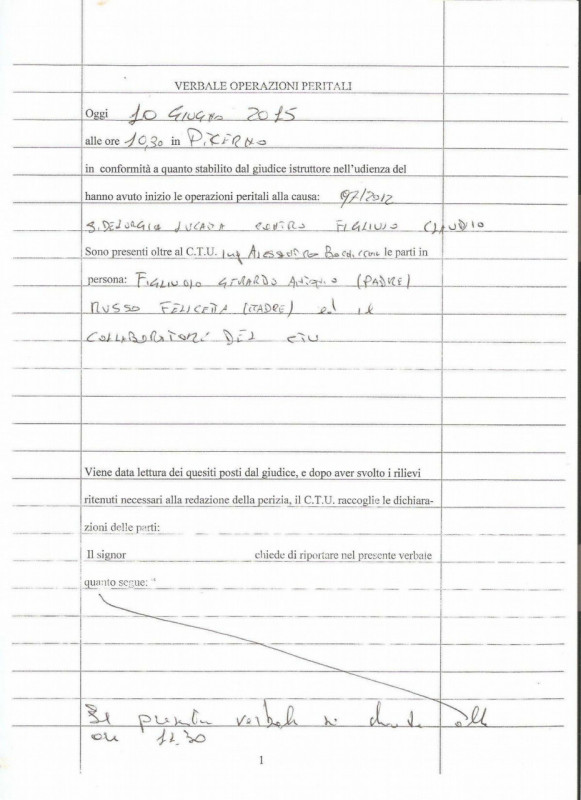 VERBALE OPERAZIONI PERITALI
Oggi 10 GIUGNO 2015
alle ore 10,30 in PICERNO
in conformità a quanto stabilito dal giudice istruttore nell'udienza del
hanno avuto inizio le operazioni peritali alla causa: 97/2012
CONTRO FIGLIUOLO CLAUDIO
Sono presenti oltre al C.T.U. Ing le parti in
persona: FIGLIUOLO GERARDO ANTONIO (PADRE)
RUSSO FELICETTA (MADRE) ed il
COLLABORATORE DEL CTU
Viene data lettura dei quesiti posti dal giudice, e dopo aver svolto i rilievi
ritenuti necessari alla redazione della perizia, il C.T.U. raccoglie le dichiara-
zioni delle parti:
Il signor chiede di riportare nel presente verbale
quanto segue:
Il presente verbale si chiude alle
ore 11.30
1